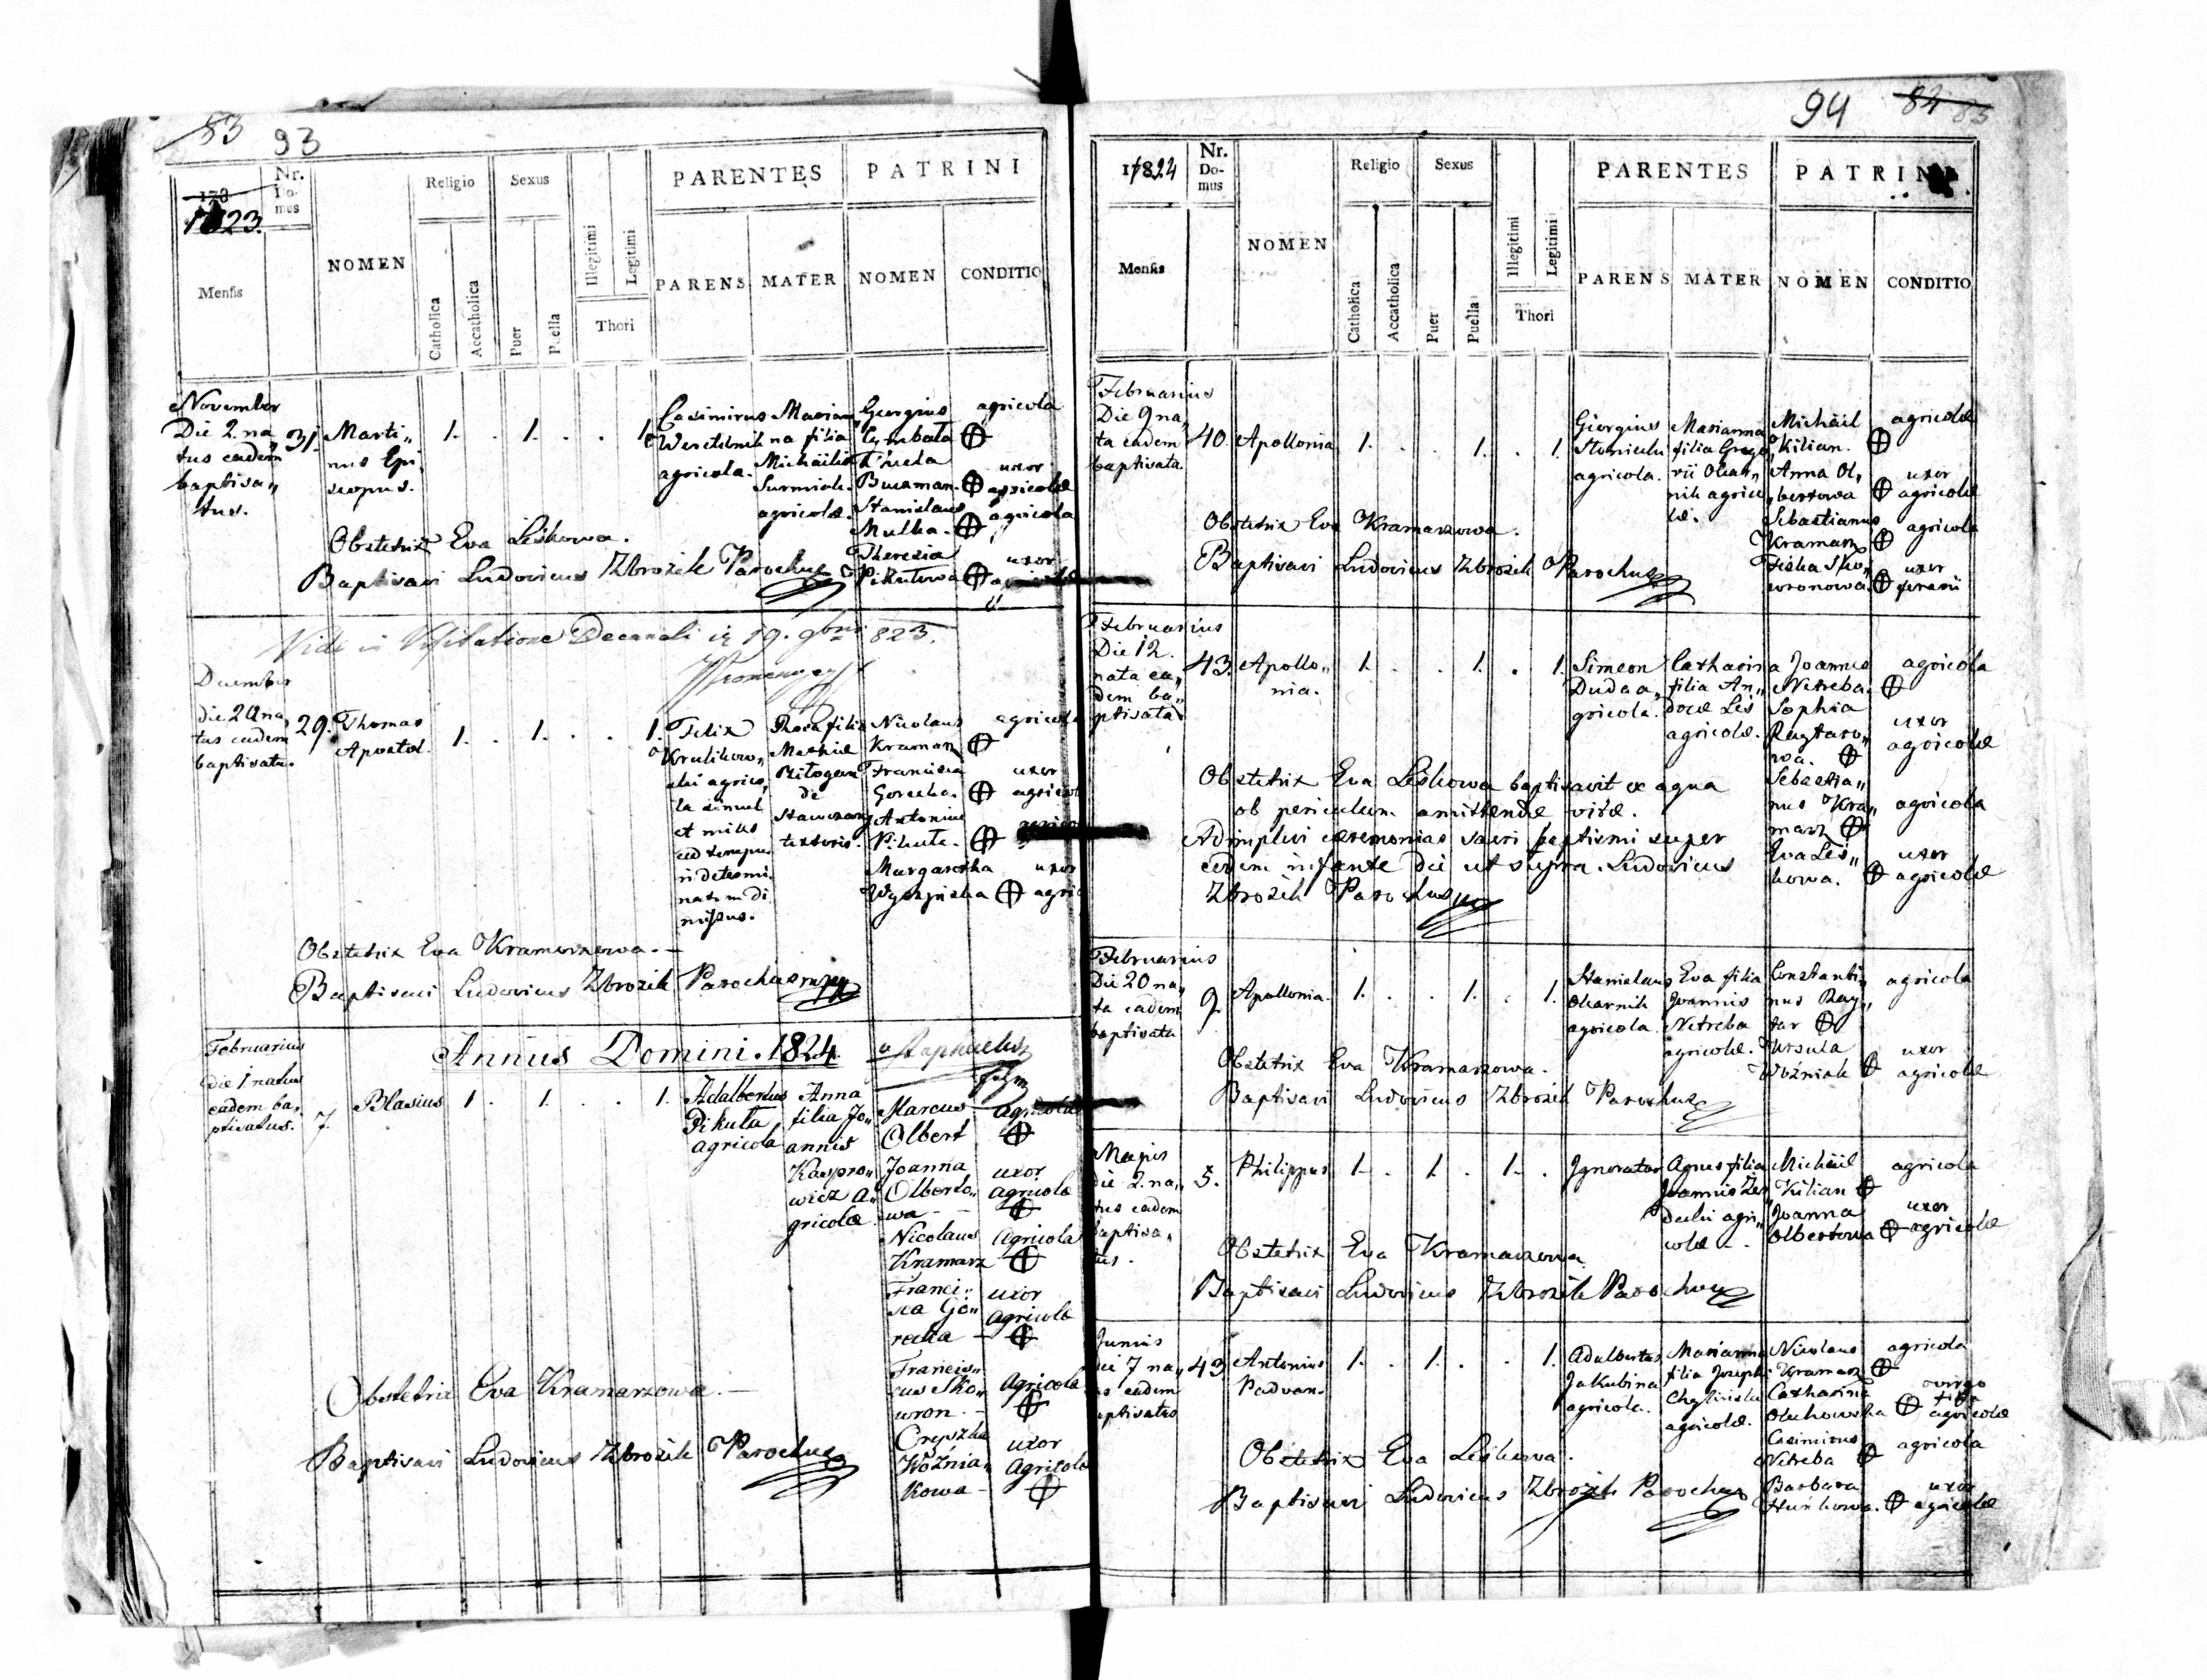 83 93
1823.
Nr. Domus
Mensis
NOMEN
Religio
Catholica
Accatholica
Sexus
Puer
Puella
Illegitimi
Legitimi
Thori
PARENTES
PARENS
MATER
PATRINI
NOMEN
CONDITIO
November
Die 2. na„
tus eadem
baptisa„
tus.
31.
Marti„
nus Epi„
scopus.
1. . 1. . . 1.
Casimirus
agricola.
Marian„
na filia
Michaëlis
Surmiak
agricolæ.
Georgius
Cymbala
Stanislaus
Mulka.
Theresia
Pikutowa
agricola
uxor
agricolæ
agricola
uxor
Obstetrix Eva Leśkowa.
Baptisavi Ludovicus Zbrożek Parochus
Vidi in Visitatione Decanali die 19. 9bris 823.
December
die 20 na„
tus eadem
baptisatus.
29.
Thomas
Apostol.
1. . 1. . . 1.
Felix
Krulikow„
ski agrico„
la simul
et miles
ad tempus
indetermi„
natum di„
missus.
Nicolaus
Kramarz
Francisca
Gorecka.
Antonius
Pikuta.
Margaretha
agricola
uxor
uxor
Obstetrix Eva Kramarzowa.
Baptisavi Ludovicus Zbrożek Parochus
Annus Domini. 1824.
Februarius
die 1 natus
eadem ba„
ptisatus.
7.
Blasius
1. . 1. . . 1.
Adalbertus
Pikuta
agricola
Anna
filia Jo„
annis
Kaspro„
wicz a„
gricolæ
Marcus
Olbert
Joanna
Olberto„
wa
Nicolaus
Kramarz
Franci„
sca Go„
recka
Francis„
cus Sko„
wron.
Woźnia„
kowa
agricola
uxor
agricolæ
Agricola
uxor
Agricolæ
Agricola
uxor
Agricolæ
Obstetrix Eva Kramarzowa.
Baptisavi Ludovicus Zbrożek Parochus
94
1824
Nr. Domus
Mensis
NOMEN
Religio
Catholica
Accatholica
Sexus
Puer
Puella
Illegitimi
Legitimi
Thori
PARENTES
PARENS
MATER
PATRINI
NOMEN
CONDITIO
Februarius
Die 9 na„
ta eadem
baptisata
40.
Apollonia
1. . . 1. . 1.
Giorgius
agricola.
Marianna
filia Grego„
rii
agrico„
læ.
Michaël
Kilian.
Anna Ol„
bertowa
Sebastianus
Kramarz
agricola
uxor
agricolæ
agricola
uxor
Obstetrix Eva Kramarzowa.
Baptisavi Ludovicus Zbrożek Parochus
Februarius
Die 12.
nata ea„
dem ba„
ptisata
43.
Apollo„
nia.
1. . . 1. . 1.
Simeon
Duda a„
gricola.
Catharina
filia An„
dreæ Leś
agricolæ.
Joannes
Netreba.
Sophia
Raytaro„
wa.
Sebastia„
nus Kra„
marz
Eva Leś„
kowa.
agricola
uxor
agricolæ
agricola
uxor
agricolæ
Obstetrix Eva Leśkowa baptisavit ex aqua
ob periculum amittendæ vitæ.
Adimplevi cæremonias sacri baptismi super
eadem infante die ut supra. Ludovicus
Zbrożek Parochus
Februarius
Die 20 na„
ta eadem
baptisata
9.
Apollonia.
1. . . 1. . 1.
Stanislaus
agricola
Eva filia
Joannis
Netreba
agricolæ.
Constanti„
nus Ray„
tar
Ursula
Woźniak
agricola
uxor
agricolæ
Obstetrix Eva Kramarzowa.
Baptisavi Ludovicus Zbrożek Parochus
Majus
die 2. na„
tus eadem
baptisa„
tus.
Philippus
1. . 1. . 1. .
Ignoratur
Agnes filia
Joannis
agri„
colæ
Michaël
Kilian
Joanna
Olbertowa
agricola
uxor
agricolæ
Obstetrix Eva Kramarzowa
Baptisavi Ludovicus Zbrożek Parochus
Junius
die 7 na„
tus eadem
baptisatus
43
Antonius
Padvan.
1. . 1. . . 1.
Adalbertus
Jakubina
agricola.
Marianna
filia Josephi
agricolæ.
Nicolaus
Kramarz
Catharina
Casimirus
Netreba
Barbara
agricola
virgo
filia
agricolæ
agricola
uxor
agricolæ
Obstetrix Eva Leśkowa.
Baptisavi Ludovicus Zbrożek Parochus